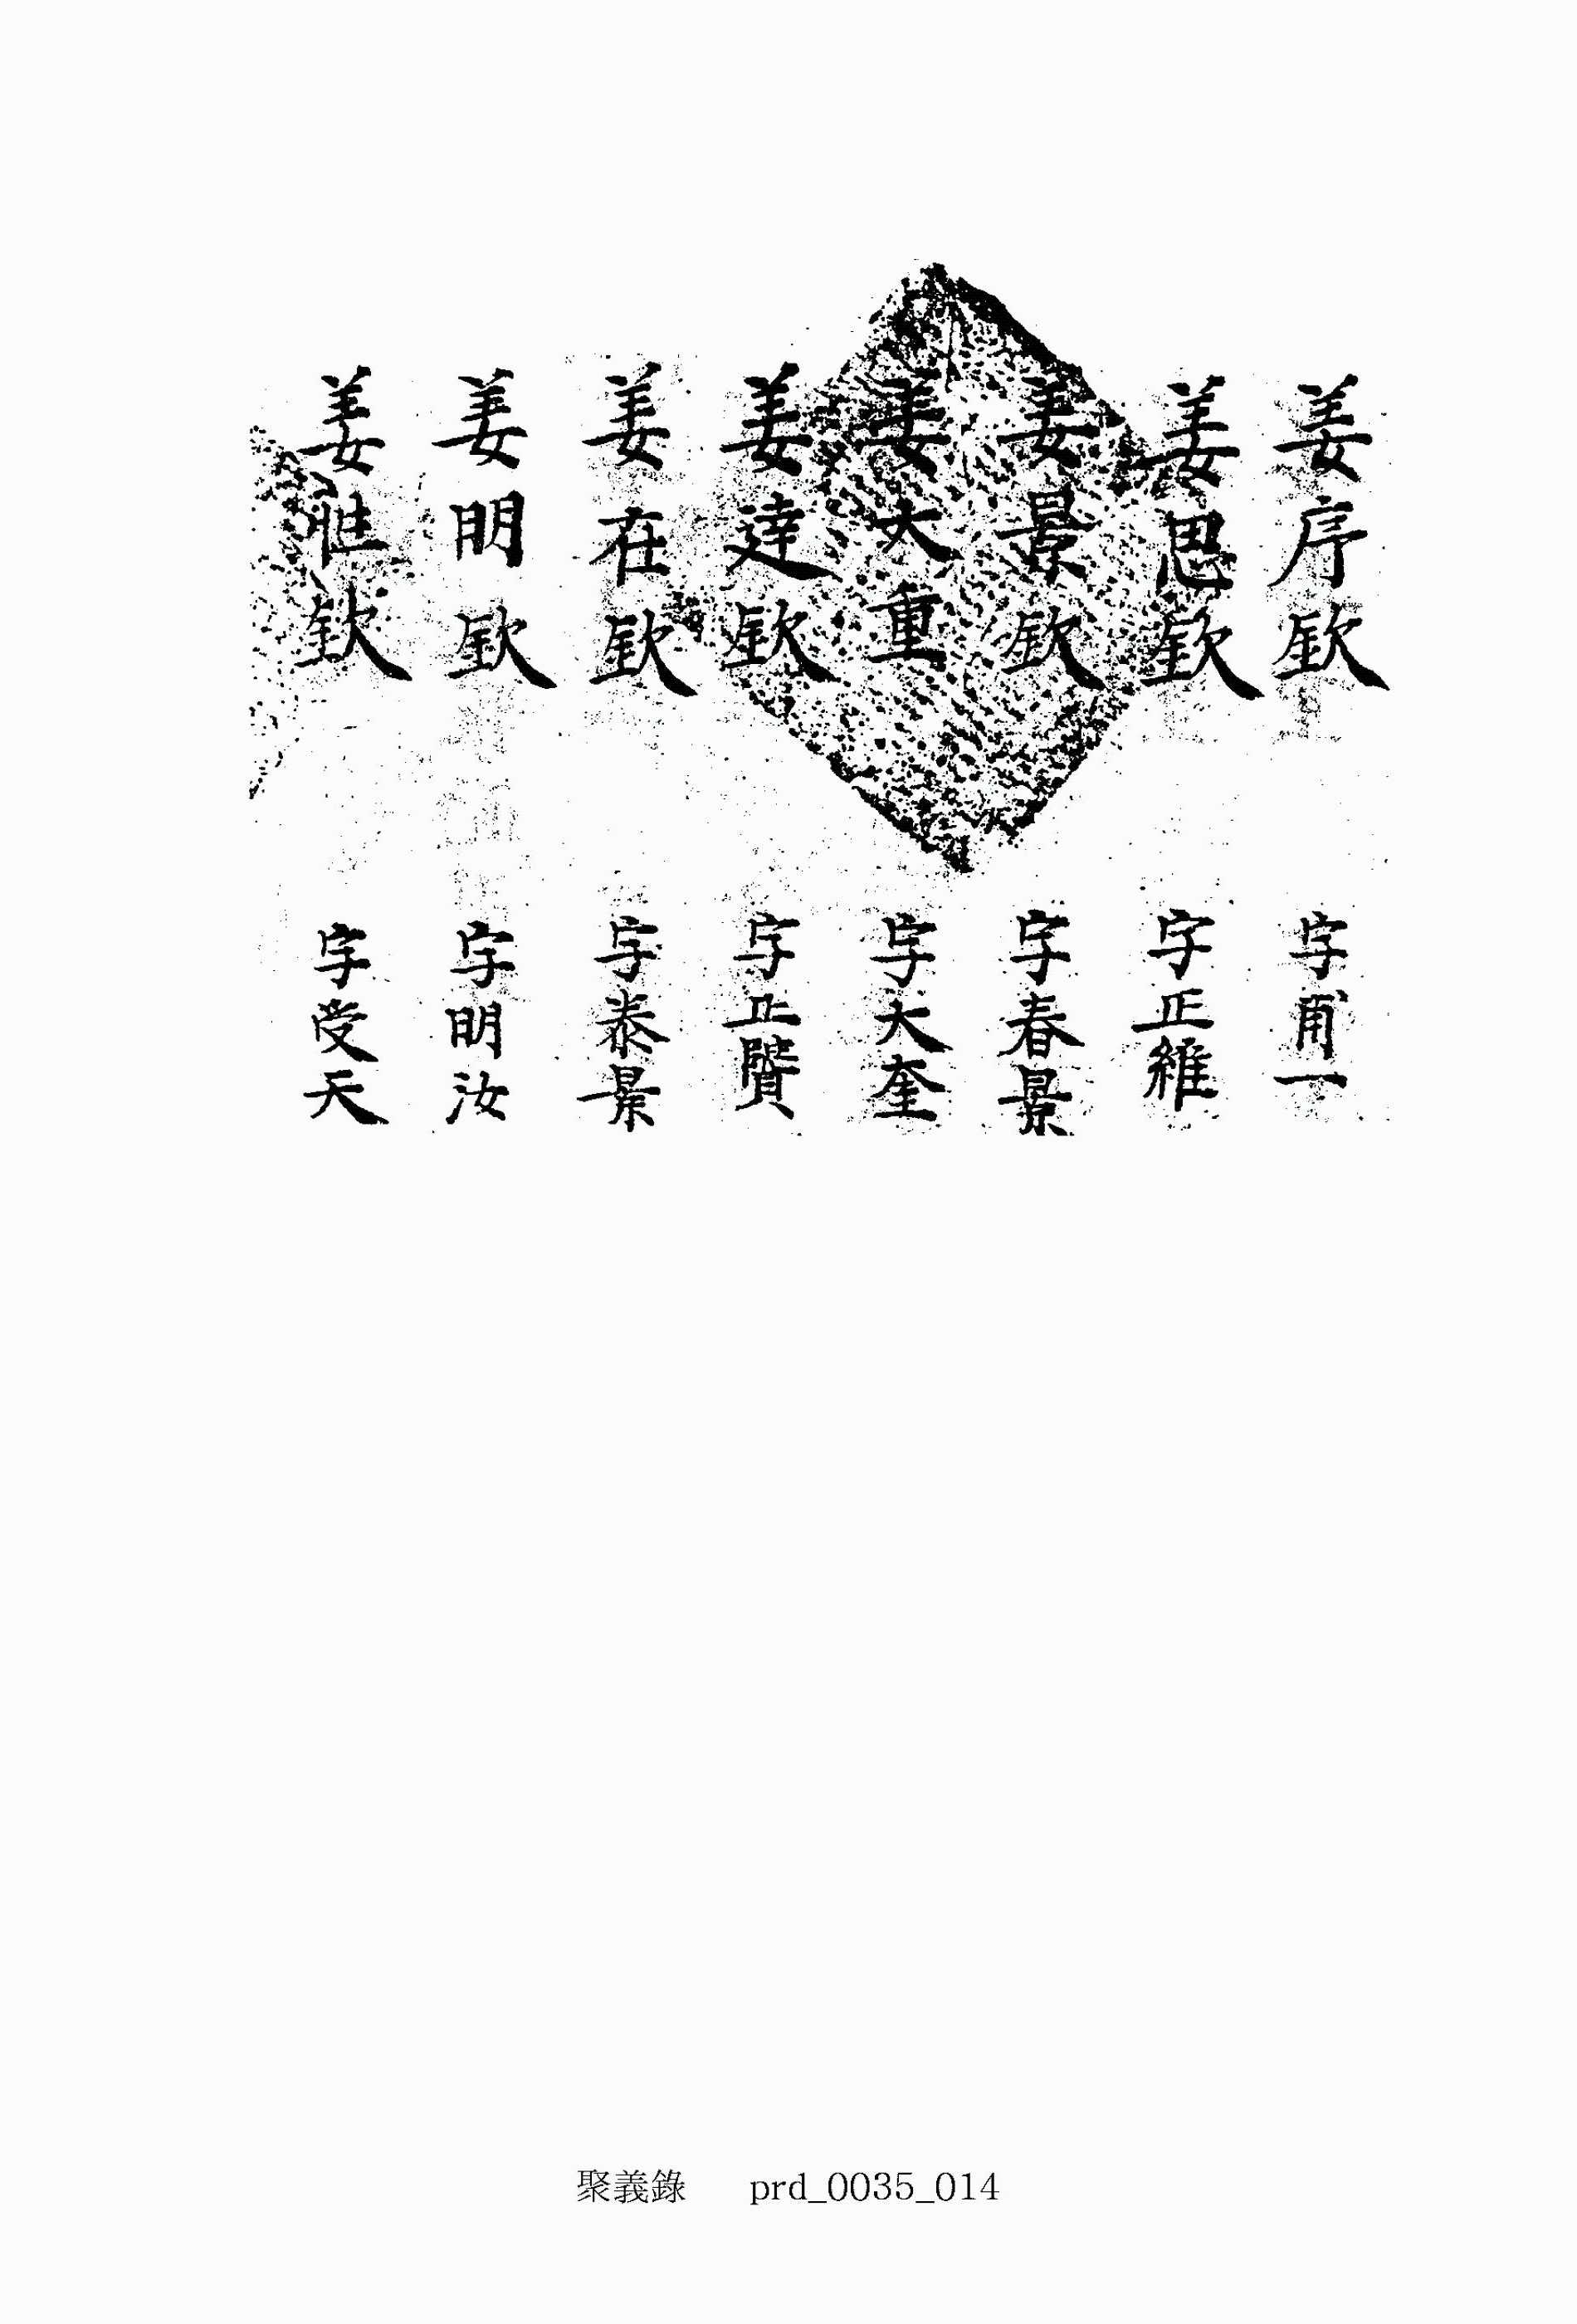 姜序欽 字甫一
姜思欽 字正維
姜景欽 字春景
姜大重 字大奎
姜達欽 字正
姜在欽 字泰景
姜明欽 字明汝
姜 欽 字受天
聚義錄 prd_0035_014